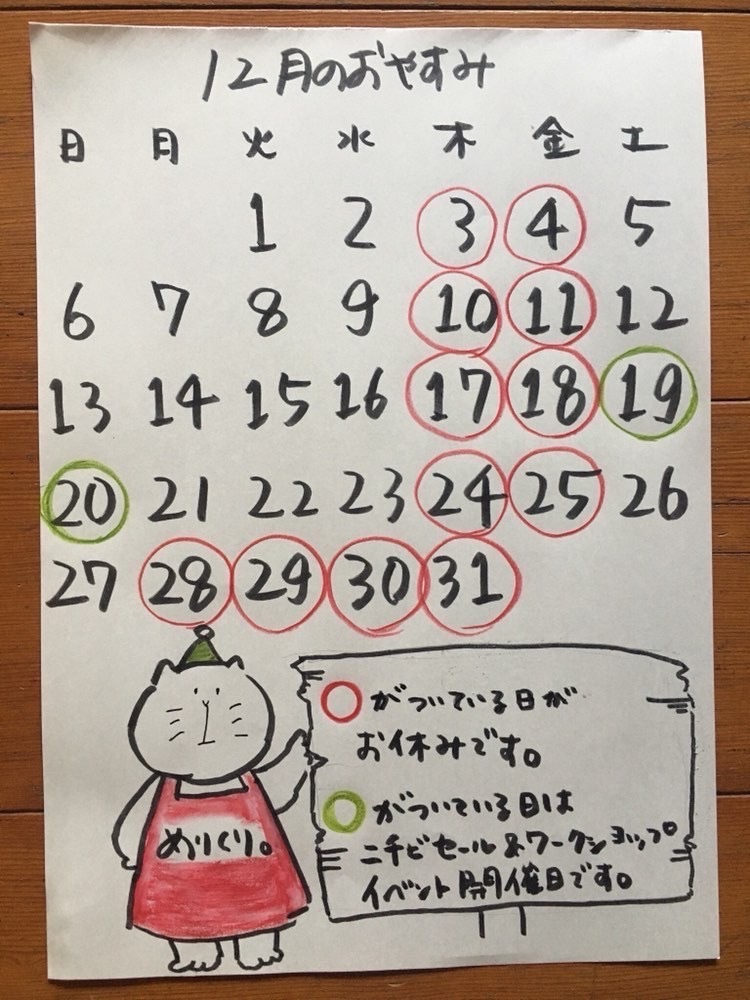 12月のおやすみ
日 月 火 水 木 金 土
1 2 3 4 5
6 7 8 9 10 11 12
13 14 15 16 17 18 19
20 21 22 23 24 25 26
27 28 29 30 31
○がついている日が
お休みです。
○がついている日は
ニチビセール&ワークショップ
イベント開催日です。
めりくり。